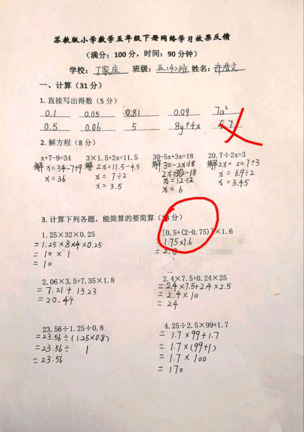 苏教版小学数学五年级下册网络学习效果反馈
(满分：100 分，时间：90 分钟)
学校：丁家庄 班级：五(4)班 姓名：
一、计算（31 分）
1. 直接写出得数（5 分）
0.1 0.05 0.81 0.09 7a²
0.5 0.06 5 8y+4x
2. 解方程（8 分）
x+7-9=34 3×1.5+2x=11.5 30-5x+3x=18 20.7÷2x=3
解 x=34-7+9 解 2x=11.5-4.5 解 30-2x=18 解 2x=20.7÷3
x=36 x=7÷2 2x=30-18 x=6.9÷2
x=3.5 x=12÷2 x=3.45
x=6
3. 计算下列各题，能简算的要简算（18 分）
1.25×32×0.25 [0.5+(2-0.75)]×1.6
=1.25×8×4×0.25 =1.75×1.6
=10×1 =2.8
=10
2.06×3.5+7.35×1.8 2.4×7.5+0.24×25
=7.21+13.23 =2.4×7.5+2.4×2.5
=20.44 =2.4×10
=24
23.56÷1.25÷0.8 4.25÷2.5×99+1.7
=23.56÷(1.25×0.8) =1.7×99+1.7
=23.56÷1 =1.7×(99+1)
=23.56 =1.7×100
=170